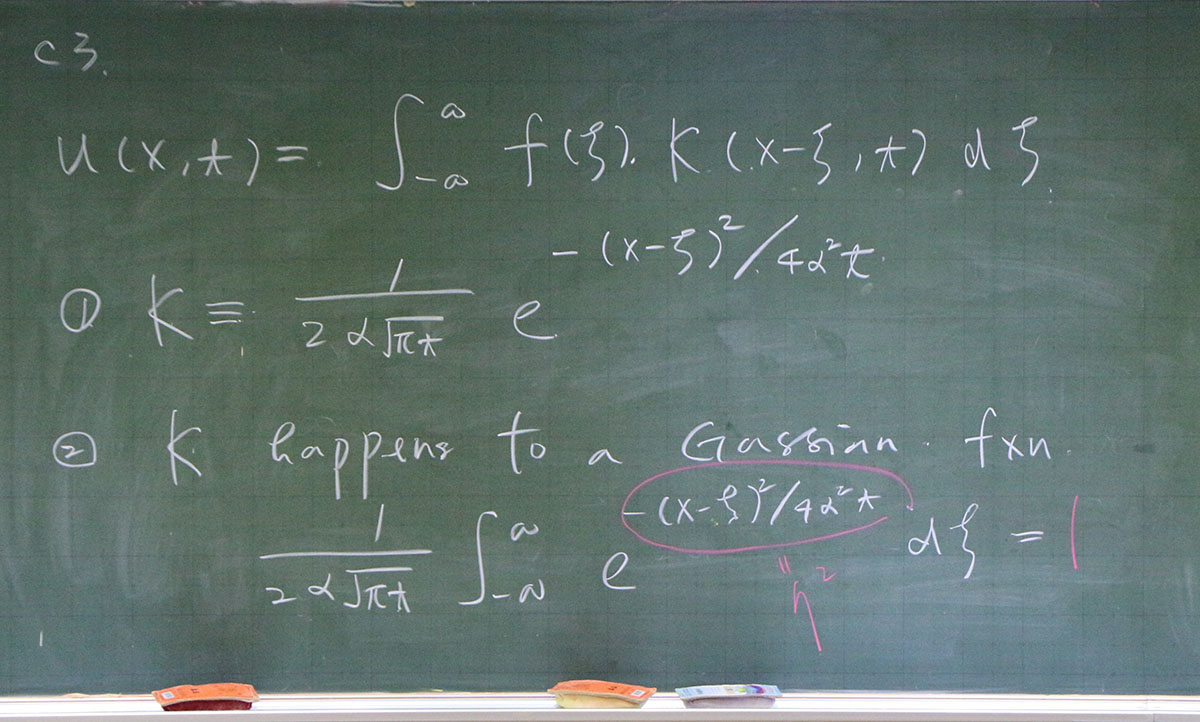 c3.
u(x,t)= ∫_{-∞}^{∞} f(ξ). K(x-ξ,t) dξ
① K ≡ \frac{1}{2α√πt} e^{-(x-ξ)²/4α²t}
② K happens to a Gassian fxn.
\frac{1}{2α√πt} ∫_{-∞}^{∞} e^{-(x-ξ)²/4α²t} dξ = 1
" η²